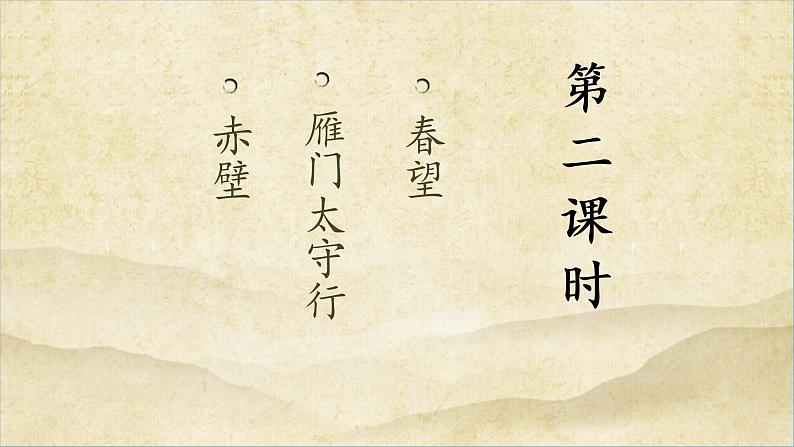 第二课时
春望
雁门太守行
赤壁